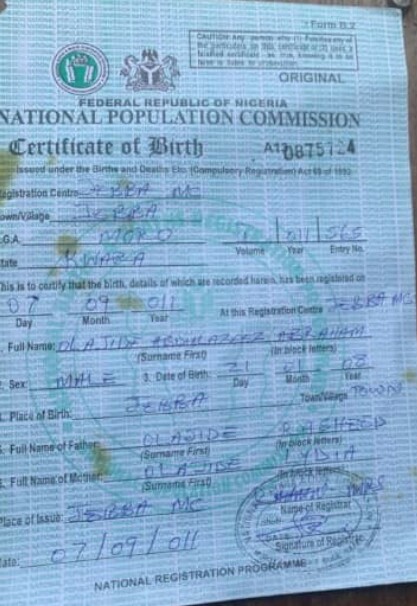 Form B.2
CAUTION: Any person who (1) Falsifies any of
the particulars on this certificate or (2) uses a
falsified certificate as true, knowing it to be
false is liable to prosecution.
ORIGINAL
FEDERAL REPUBLIC OF NIGERIA
NATIONAL POPULATION COMMISSION
Certificate of Birth
0875724
Issued under the Births and Deaths Etc. (Compulsory Registration) Act 69 of 1992.
Registration Centre JEBBA MC
Town/Village JEBBA
L.G.A. MORO 011 565
Volume Year Entry No.
State KWARA
This is to certify that the birth, details of which are recorded herein, has been registered on
07 09 011 At this Registration Centre JEBBA MC
Day Month Year
1. Full Name: OLAJIDE ABDULAZEEZ ABRAHAM
(Surname First) (In block letters)
2. Sex: MALE 3. Date of Birth: 21 01 08
Day Month Year
4. Place of Birth: JEBBA Town/Village TOWN
5. Full Name of Father: OLAJIDE RASHEED
(Surname First) (In block letters)
6. Full Name of Mother: OLAJIDE LYDIA
(Surname First) (In block letters)
Place of Issue: JEBBA MC MRS
Name of Registrar
Date: 07/09/011
Signature of Registrar
NATIONAL REGISTRATION PROGRAMME